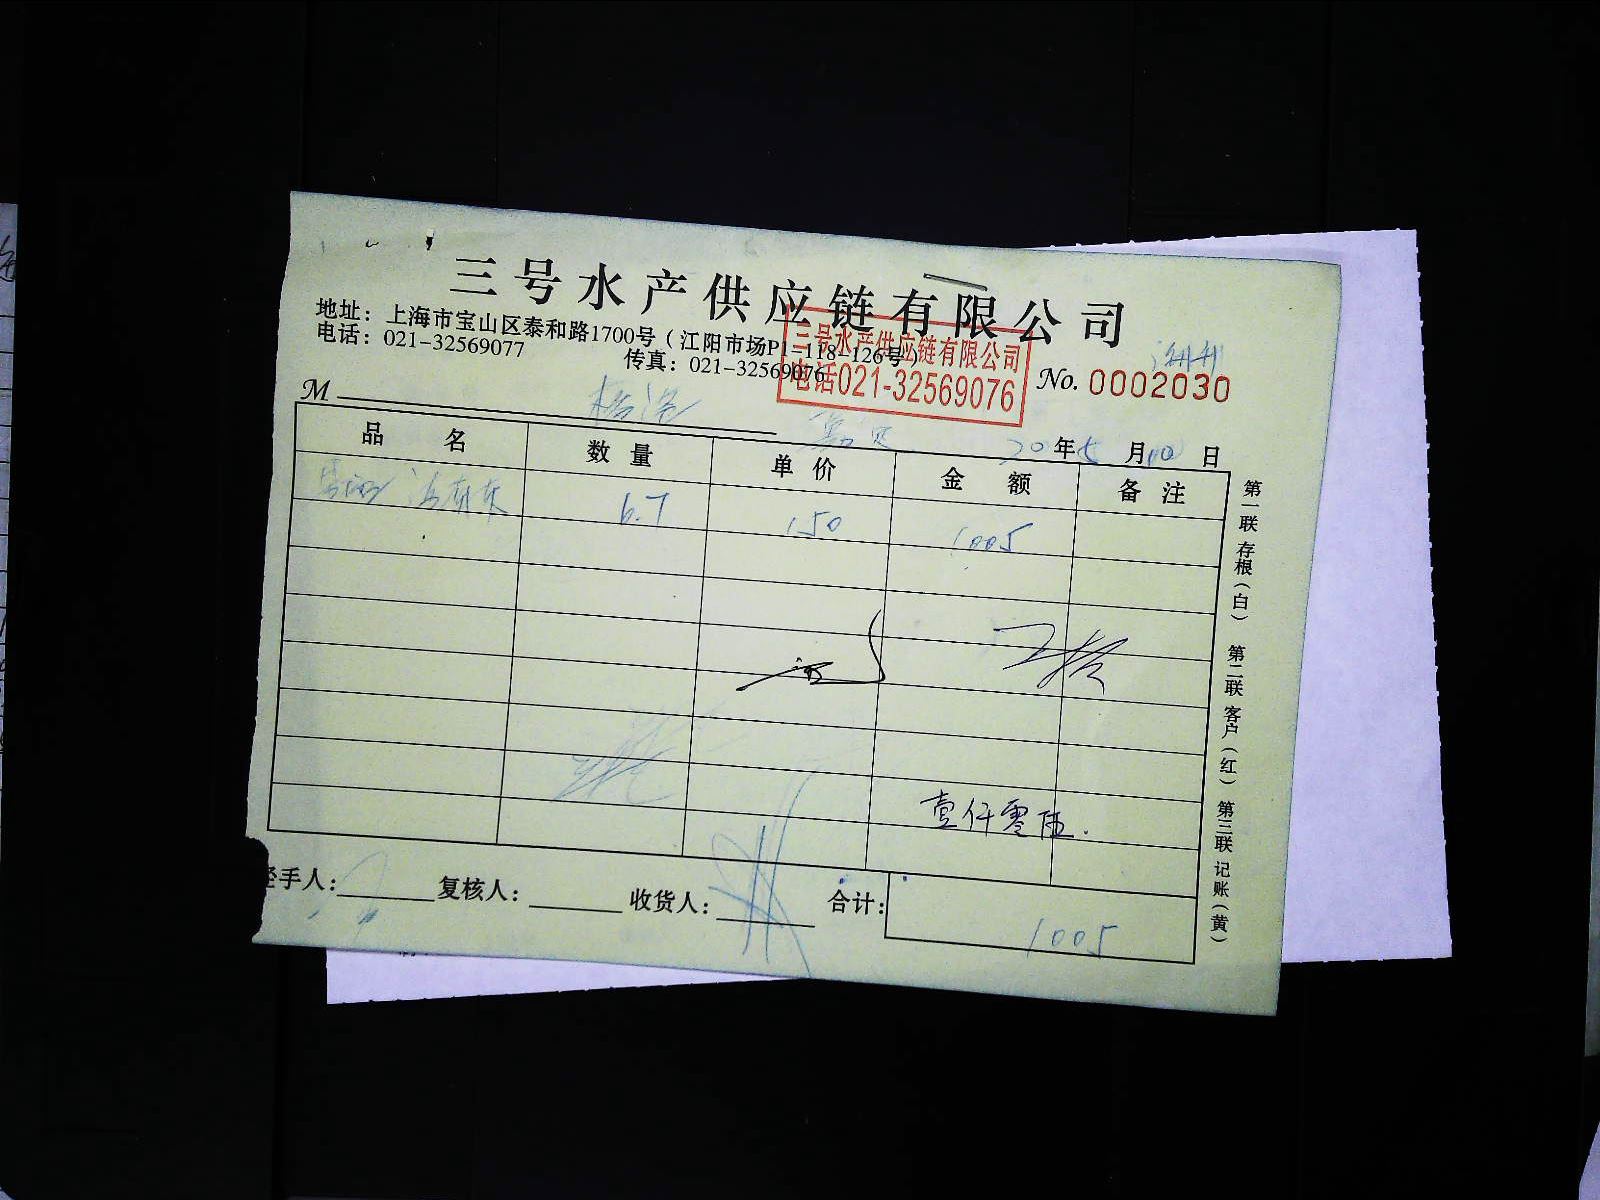 三号水产供应链有限公司
地址：上海市宝山区泰和路1700号（江阳市场P1-118-126号）
电话：021-32569077 传真：021-32569076
三号水产供应链有限公司
电话021-32569076
No. 0002030
M
20年5月10日
品名 数量 单价 金额 备注
6.7 150 1005
壹仟零伍.
经手人： 复核人： 收货人： 合计： 1005
第一联 存根（白） 第二联 客户（红） 第三联 记账（黄）